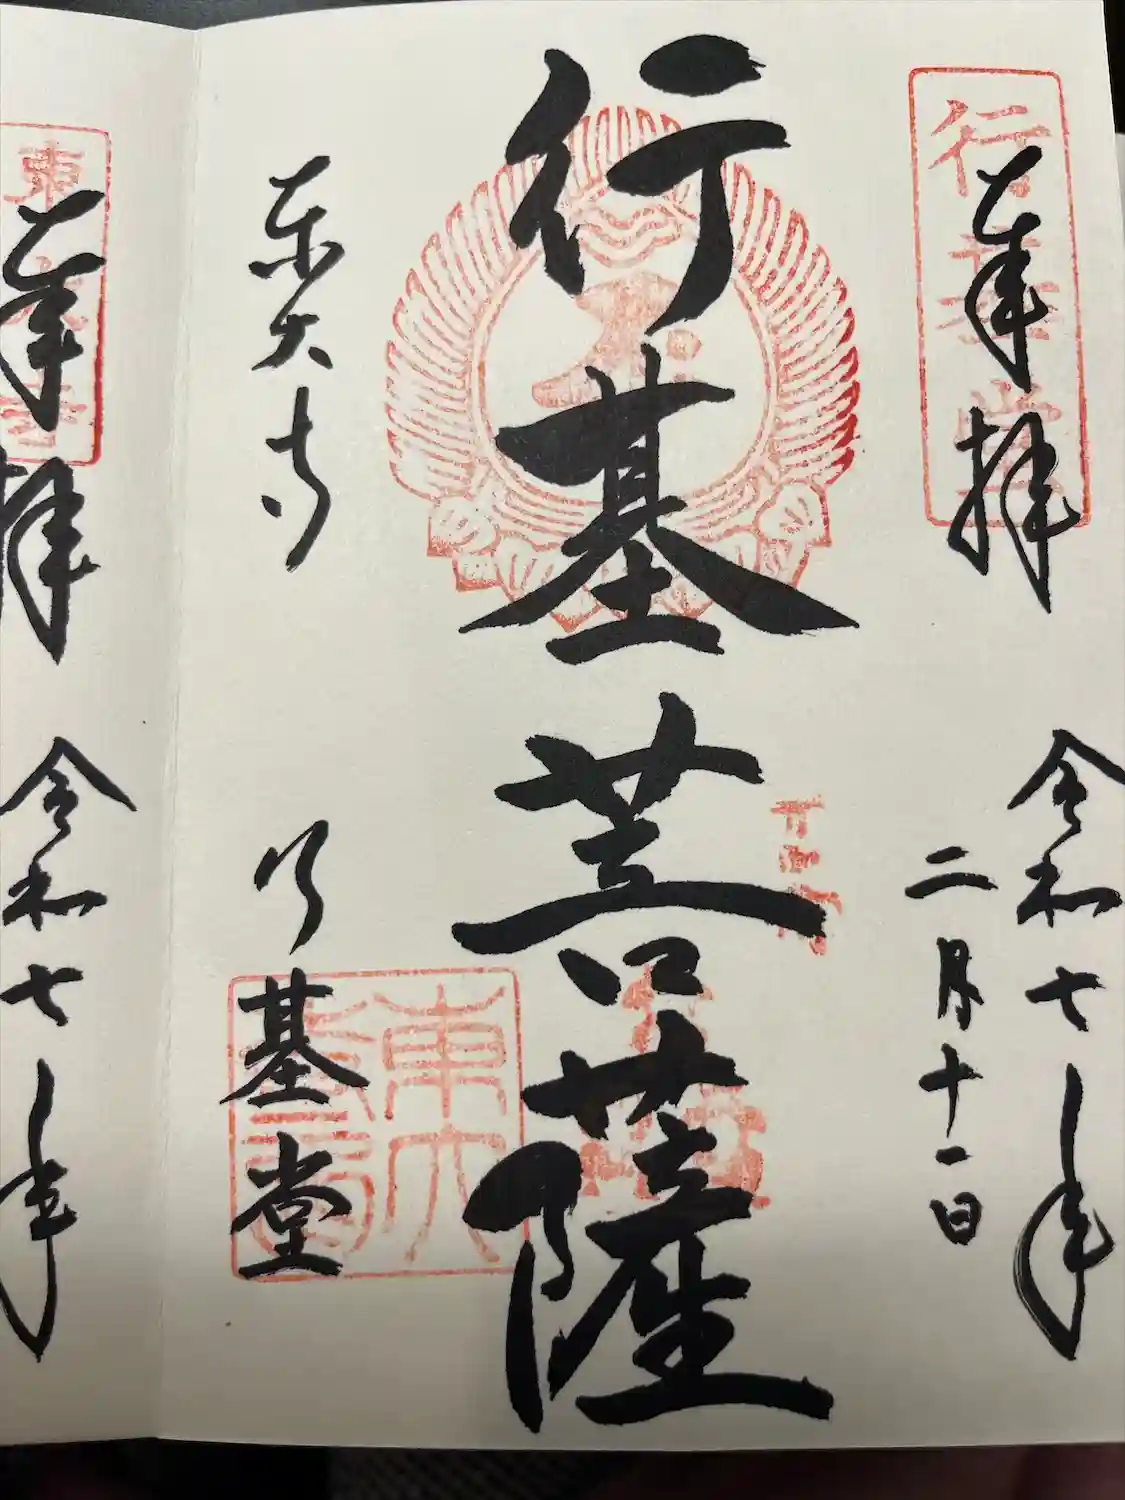 行基堂
奉拝
令和七年
二月十一日
行基菩薩
東大寺
行基堂
東大寺
東大寺
奉拝
令和七年